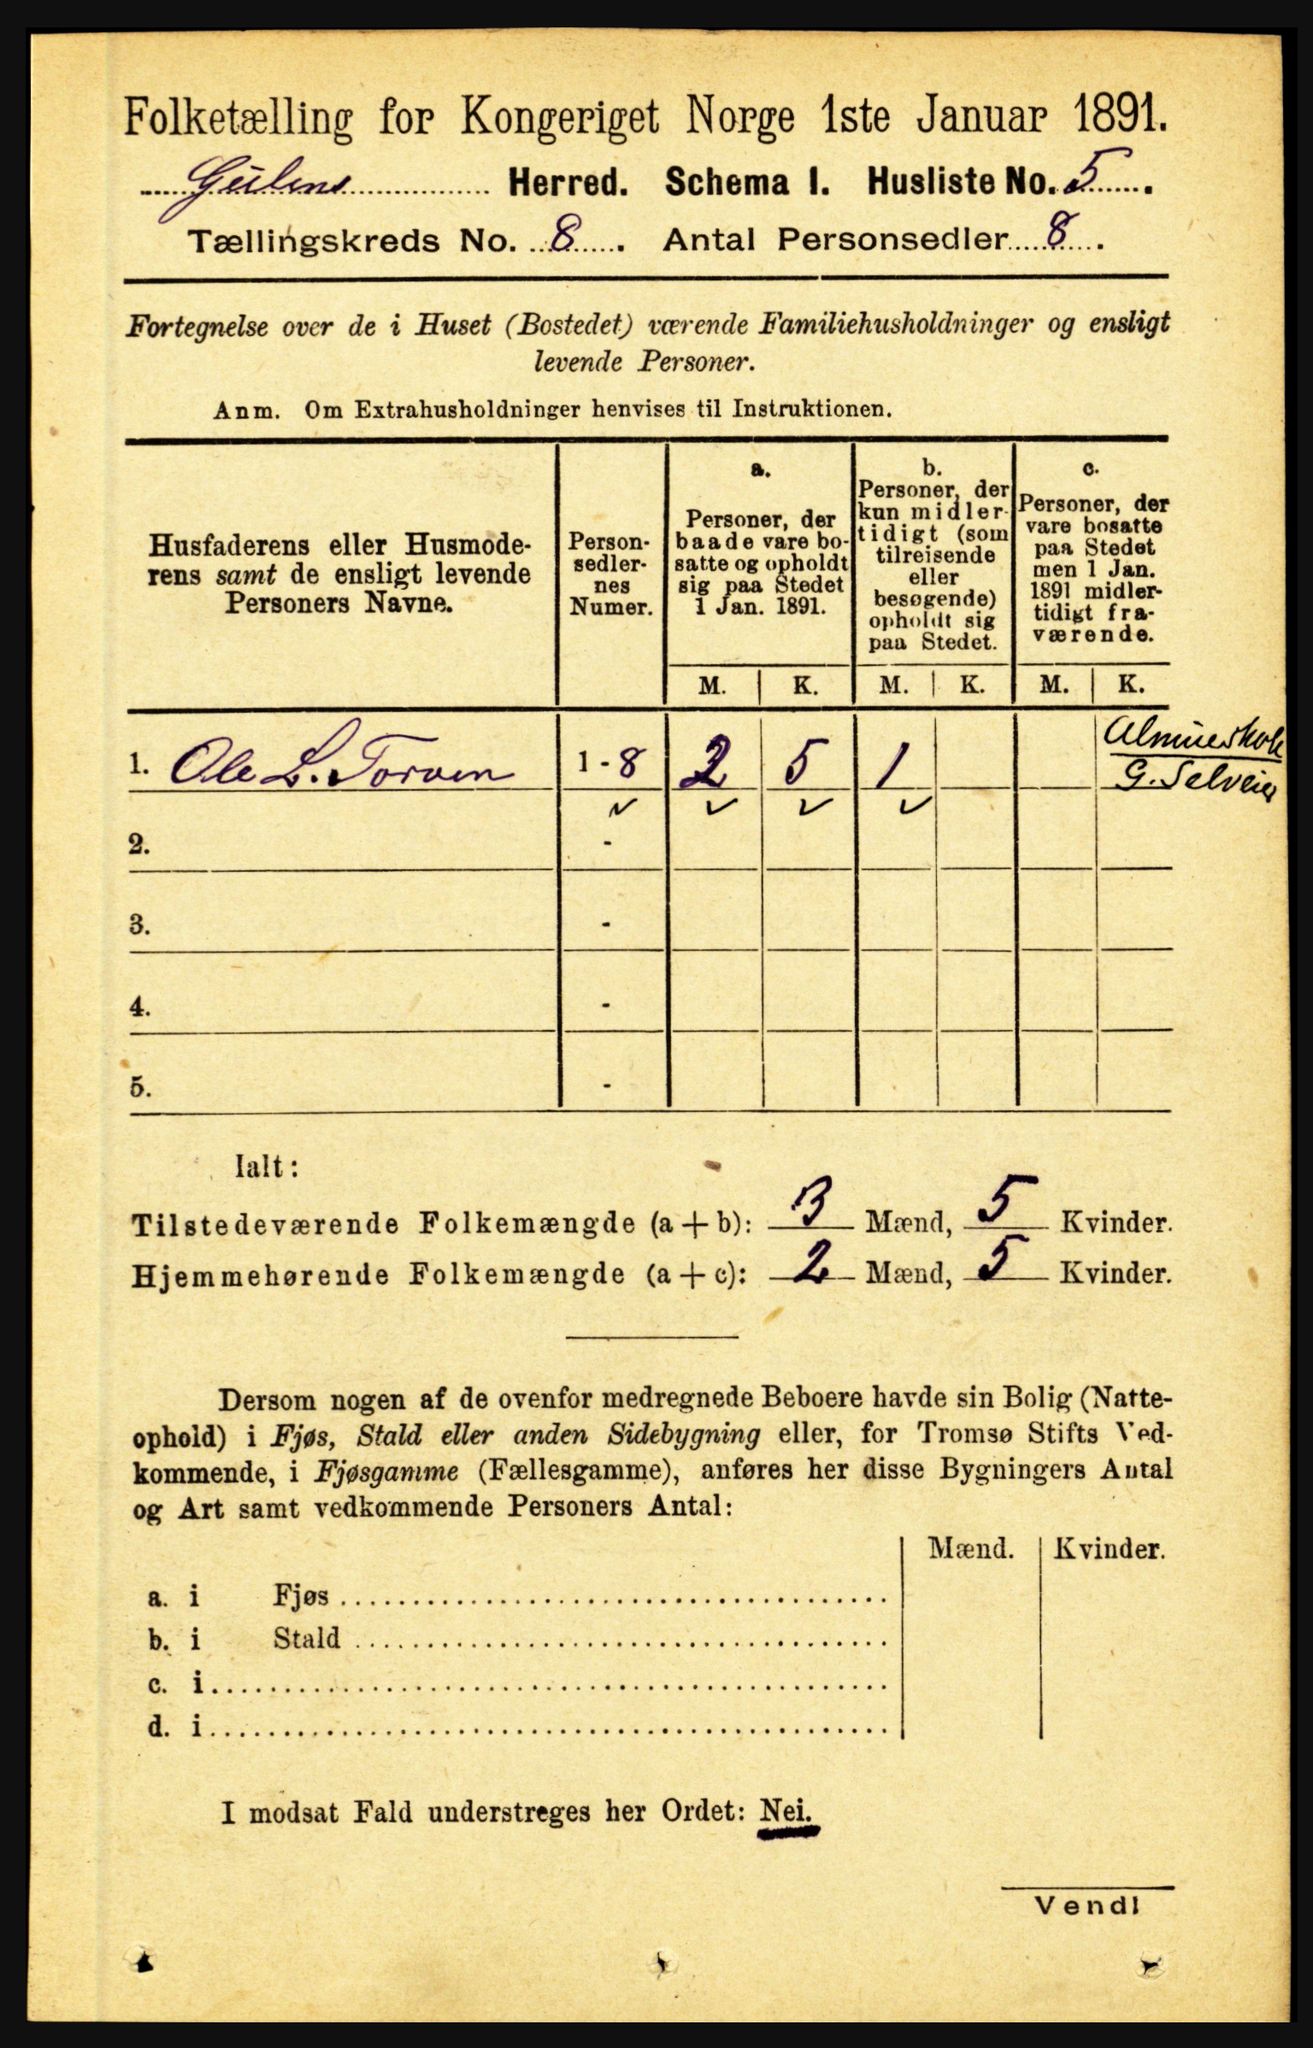 Folketælling for Kongeriget Norge 1ste Januar 1891.
Gulens Herred. Schema I. Husliste No. 5.
Tællingskreds No. 8. Antal Personsedler 8.
Fortegnelse over de i Huset (Bostedet) værende Familiehusholdninger og ensligt
levende Personer.
Anm. Om Extrahusholdninger henvises til Instruktionen.
Husfaderens eller Husmode-
rens samt de ensligt levende
Personers Navne.
Person-
sedler-
nes
Numer.
a.
Personer, der
baade vare bo-
satte og opholdt
sig paa Stedet
1 Jan. 1891.
b.
Personer, der
kun midler-
tidigt (som
tilreisende
eller
besøgende)
opholdt sig
paa Stedet.
c.
Personer, der
vare bosatte
paa Stedet
men 1 Jan.
1891 midler-
tidigt fra-
værende.
M. K. M. K. M. K.
1. Ole L. Torven 1 - 8 2 5 1
Almueskole
G. Selveier
2. -
3. -
4. -
5. -
Ialt:
Tilstedeværende Folkemængde (a + b): 3 Mænd, 5 Kvinder.
Hjemmehørende Folkemængde (a + c): 2 Mænd, 5 Kvinder.
Dersom nogen af de ovenfor medregnede Beboere havde sin Bolig (Natte-
ophold) i Fjøs, Stald eller anden Sidebygning eller, for Tromsø Stifts Ved-
kommende, i Fjøsgamme (Fællesgamme), anføres her disse Bygningers Antal
og Art samt vedkommende Personers Antal:
Mænd. Kvinder.
a. i Fjøs
b. i Stald
c. i
d. i
I modsat Fald understreges her Ordet: Nei.
Vend!